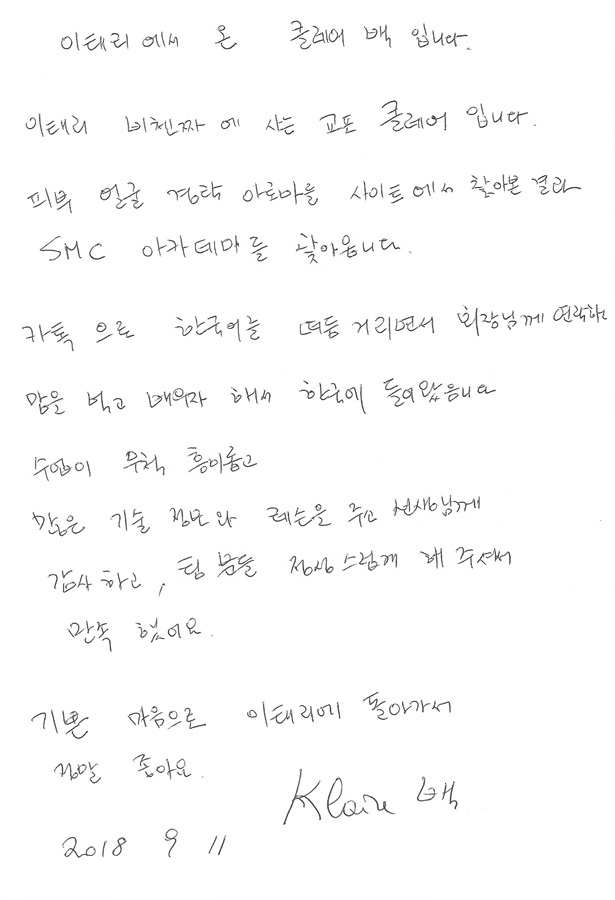 이태리에서 온 클레어 백 입니다.
이태리 비첸짜에 사는 교포 클레어 입니다.
피부 얼굴 경락 아로마를 사이트에서 찾아본 결과
SMC 아카데마를 찾아옵니다.
카톡으로 한국어를 떠듬거리면서 회장님께 연락하
맘을 먹고 배우자 해서 한국에 들어왔읍니다
수업이 무척 흥미롭고
많은 기술 정보와 레슨을 주고 선생님께
감사하고, 팀 분들 정성스럽게 해 주셔서
만족 했어요.
기쁜 마음으로 이태리에 돌아가서
정말 좋아요.
Klaire 백
2018 9 11